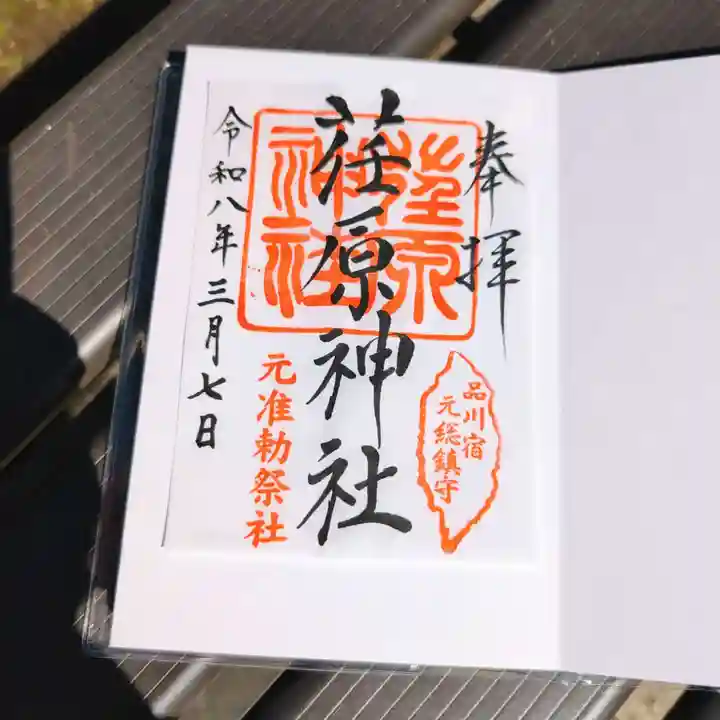 奉拝
荏原神社
荏原神社
品川宿
元総鎮守
元准勅祭社
令和八年三月七日